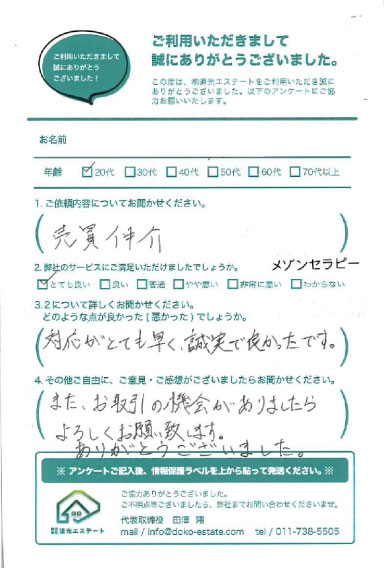 ご利用いただきまして
誠にありがとう
ございました！
ご利用いただきまして
誠にありがとうございました。
この度は、㈱道光エステートをご利用いただき誠に
ありがとうございました。以下のアンケートにご協
力お願いいたします。
お名前
年齢 20代 30代 40代 50代 60代 70代以上
1. ご依頼内容についてお聞かせください。
売買仲介
2. 弊社のサービスにご満足いただけましたでしょうか。
メゾンセラピー
とても良い 良い 普通 やや悪い 非常に悪い わからない
3. 2について詳しくお聞かせください。
どのような点が良かった(悪かった)でしょうか。
対応がとても早く、誠実で良かったです。
4. その他ご自由に、ご意見・ご感想がございましたらお聞かせください。
また、お取引の機会がありましたら
よろしくお願い致します。
ありがとうございました。
※ アンケートご記入後、情報保護ラベルを上から貼って発送ください。※
ご協力ありがとうございました。
ご不明点等ございましたら、弊社までお問い合わせくださいませ。
代表取締役 田澤 翔
mail / info@doko-estate.com tel / 011-738-5505
道光エステート